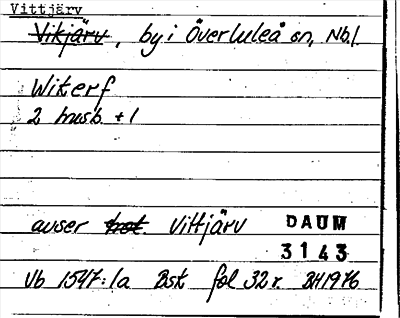 Vittjärv
Vikjärv, by i Överluleå sn, Nb.l.
Wikerf
2 husb. + 1
avser trol. Vittjärv
DAUM
3143
Vb 1547:1a Bsk fol 32 r. BH1976